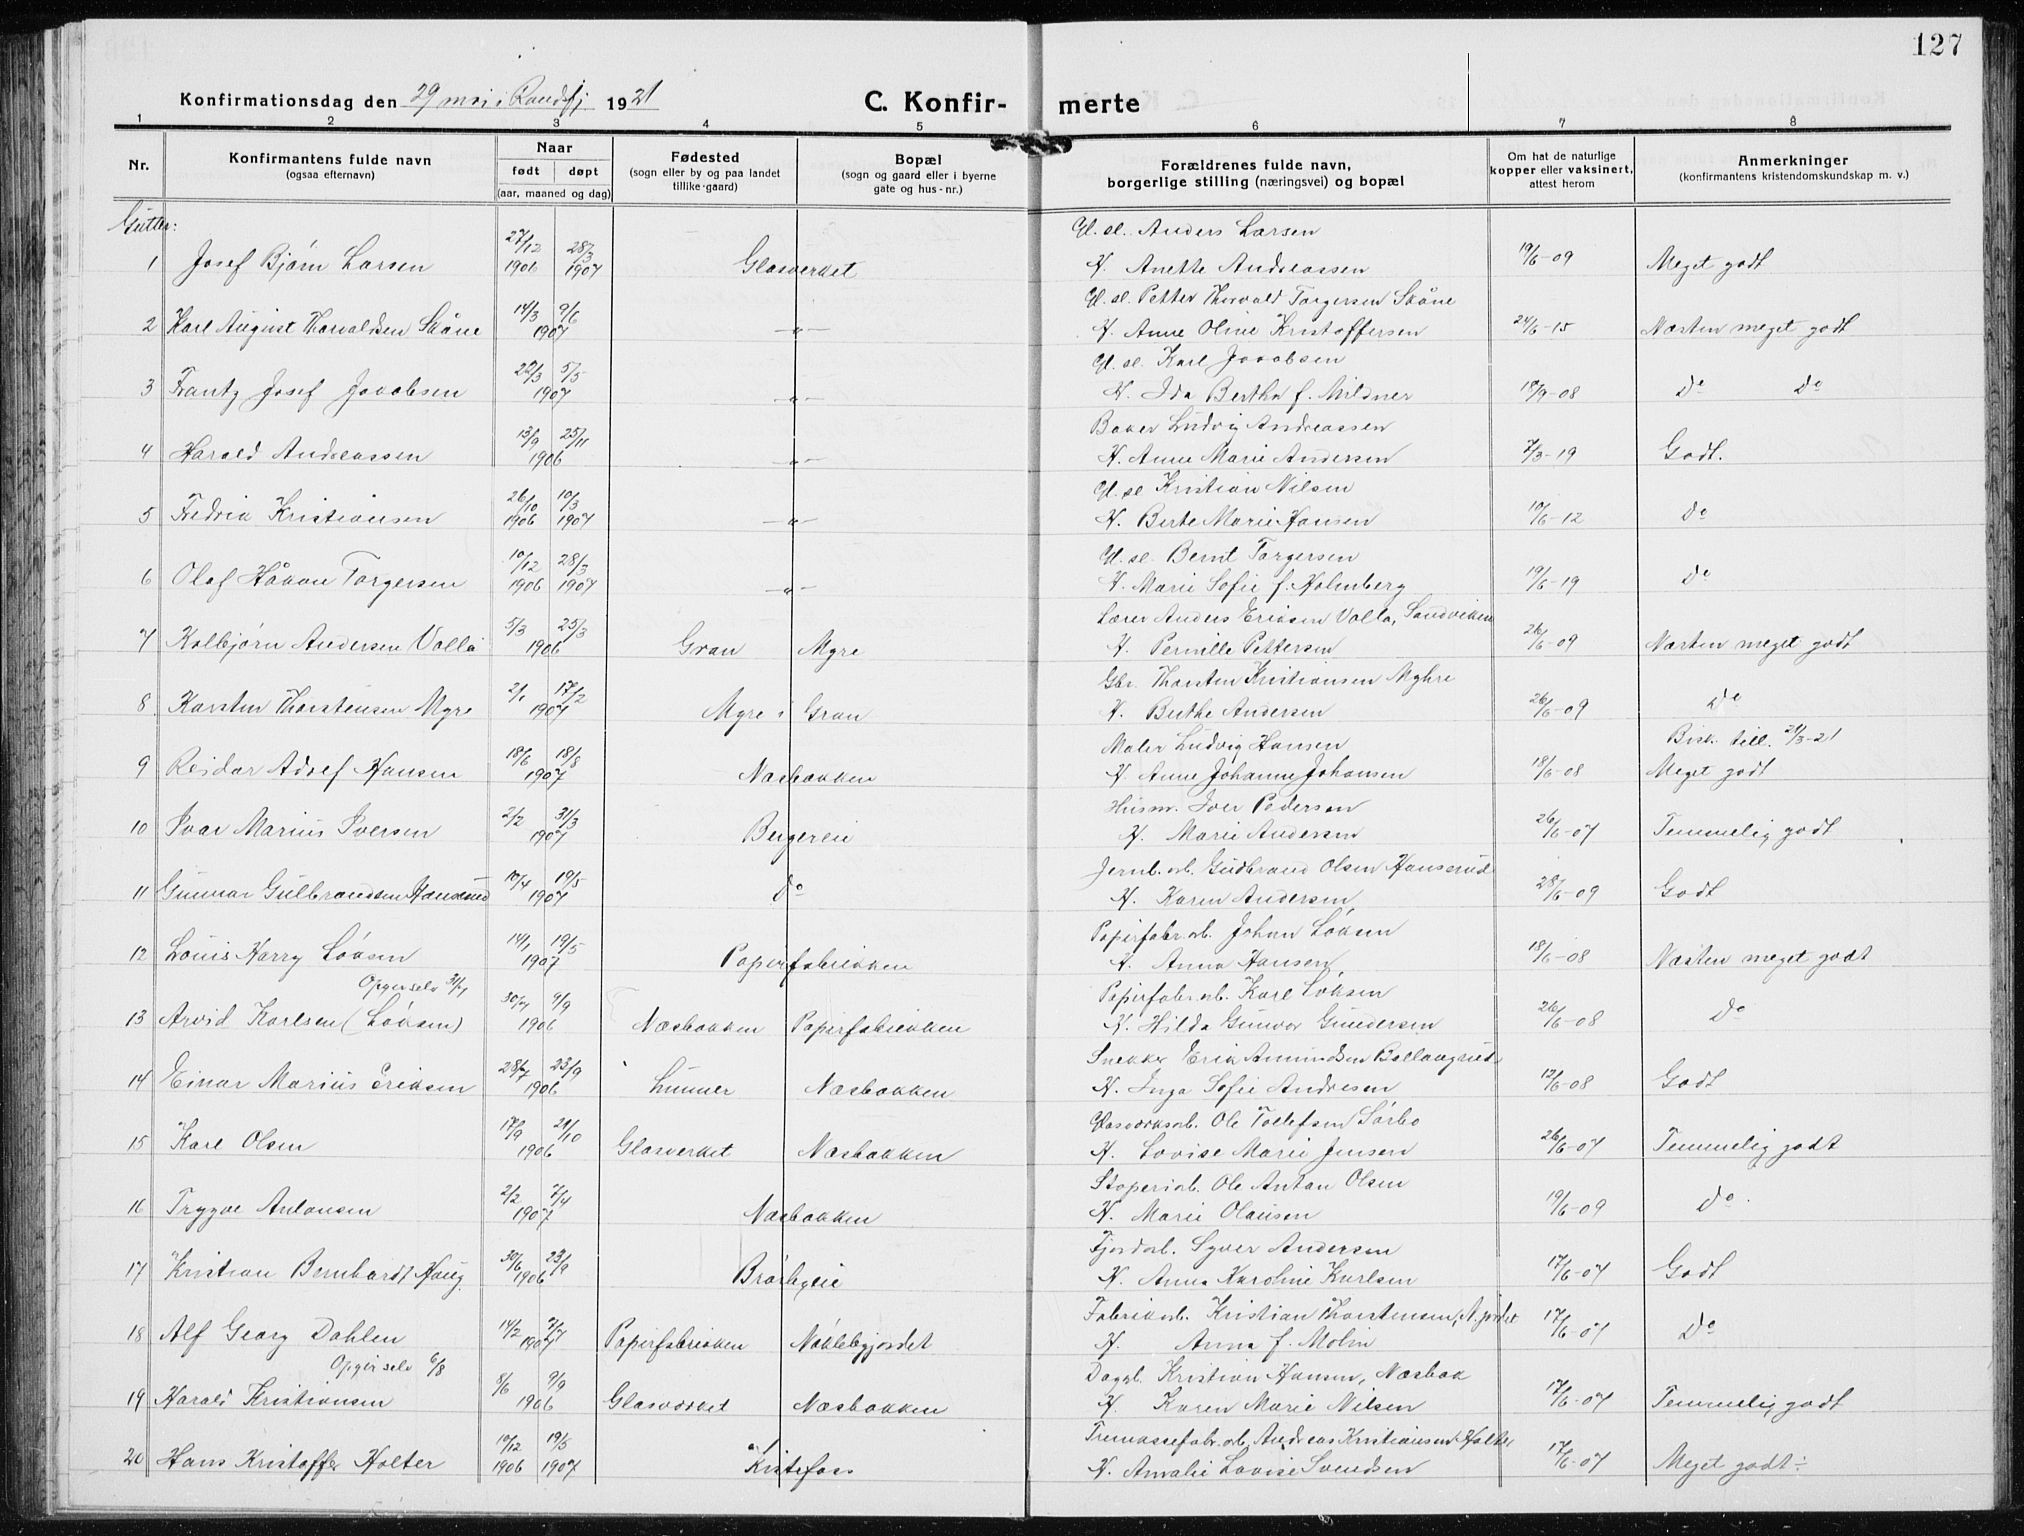 127
Konfirmationsdag den 29 mai i Randsfj 1921 C. Konfir- merte
1 2 3 4 5 6 7 8
Nr. Konfirmantens fulde navn (ogsaa efternavn) Naar født døpt (aar, maaned og dag) Fødested (sogn eller by og paa landet tillike gaard) Bopæl (sogn og gaard eller i byerne gate og hus-nr.) Forældrenes fulde navn, borgerlige stilling (næringsvei) og bopæl Om hat de naturlige kopper eller vaksinert, attest herom Anmerkninger (konfirmantens kristendomskundskap m. v.)
Gutter:
Gl. sl. Anders Larsen
1 Josef Bjørn Larsen 27/12 1906 28/3 1907 Glasverket H. Anette Andreassen 19/6-09 Meget godt
Gl. sl. Petter Thorvald Torgersen Skåne
2 Karl August Thorvaldsen Skåne 14/3 9/6 1907 -"- H. Anne Oline Kristoffersen 24/6-15 Næsten meget godt
Gl. sl. Karl Jacobsen
3 Frantz Josef Jacobsen 22/3 5/5 1907 -"- H. Ida Bertha f. Mildner 18/9-08 Do Do
Baker Ludvig Andreassen
4 Harald Andreassen 13/9 25/11 1906 -"- H. Anne Marie Andersen 7/3-19 Godt.
Gl. sl Kristian Nilsen
5 Fredrik Kristiansen 26/10 1906 10/3 1907 -"- H. Berte Marie Hansen 10/6-12 Do
Gl. sl. Bernt Torgersen
6 Olaf Håkon Torgersen 10/12 1906 28/3 1907 -"- H. Marie Sofie f. Holmberg 19/6-19 Do
Lærer Anders Eriksen Volla, Sandviken
7 Kolbjørn Andersen Volla 5/3 25/3 1906 Gran Myre H. Pernille Pettersen 26/6-09 Næsten meget godt
Gbr. Thorsten Kristiansen Myhre
8 Karsten Thorstensen Myre 2/1 17/2 1907 Myre i Gran H. Berthe Andersen 26/6-09 Do
Maler Ludvig Hansen Bisk. till. 21/3-21
9 Reidar Adolf Hansen 18/6 18/8 1907 Næsbakken H. Anne Johanne Johansen 18/6-08 Meget godt
Husm. Iver Pedersen
10 Ivar Marius Iversen 2/2 31/3 1907 Bergereie H. Marie Andersen 26/6-07 Temmelig godt
Jernb. arb. Gudbrand Olsen Hanserud
11 Gunnar Gulbrandsen Hanserud 10/4 19/5 1907 Do H. Karen Andersen 28/6-09 Godt
Papirfabr. arb. Johan Løksen
12 Louis Harry Løksen 14/1 19/5 1907 Papirfabrikken H. Anna Hansen 18/6-08 Næsten meget godt
Opgir selv 31/7 Papirfabr. arb. Karl Løksen
13 Arvid Karlsen (Løksen) 30/7 9/9 1906 Næsbakken Papirfabrikken H. Hilda Gunvor Gundersen 26/6-08 Do
Snekker Erik Amundsen Ballangrud
14 Einar Marius Eriksen 28/7 23/9 1906 Lunner Næsbakken H. Inga Sofie Andresen 12/6-08 Godt
Glasværksarb. Ole Tollefsen Sørbo
15 Karl Olsen 17/9 21/10 1906 Glasverket Næsbakken H. Lovise Marie Jensen 26/6-07 Temmelig godt
Støperiarb. Ole Anton Olsen
16 Trygve Antonsen 2/2 7/4 1907 Næsbakken H. Marie Olausen 19/6-09 Do
Fjordarb. Syver Andersen
17 Kristian Bernhardt Haug 30/6 23/9 1906 Brårbyeie H. Anna Karoline Karlsen 17/6-07 Godt
Fabrikarb. Kristian Thorstensen, N. jordet
18 Alf Georg Dahlen 14/2 7/7 1907 Papirfabrikken Nøklebyjordet H. Anna f. Molin 17/6-07 Do
Opgir selv 6/8 Dagarb. Kristian Hansen, Næsbak
19 Harald Kristiansen 8/6 9/9 1906 Glasværket Næsbakken H. Karen Marie Nilsen 17/6-07 Temmelig godt
Tremassefabr. arb. Andreas Kristiansen Holter
20 Hans Kristoffer Holter 10/12 1906 19/5 1907 Kistefoss H. Amalie Lovise Svendsen 17/6-07 Meget godt ÷